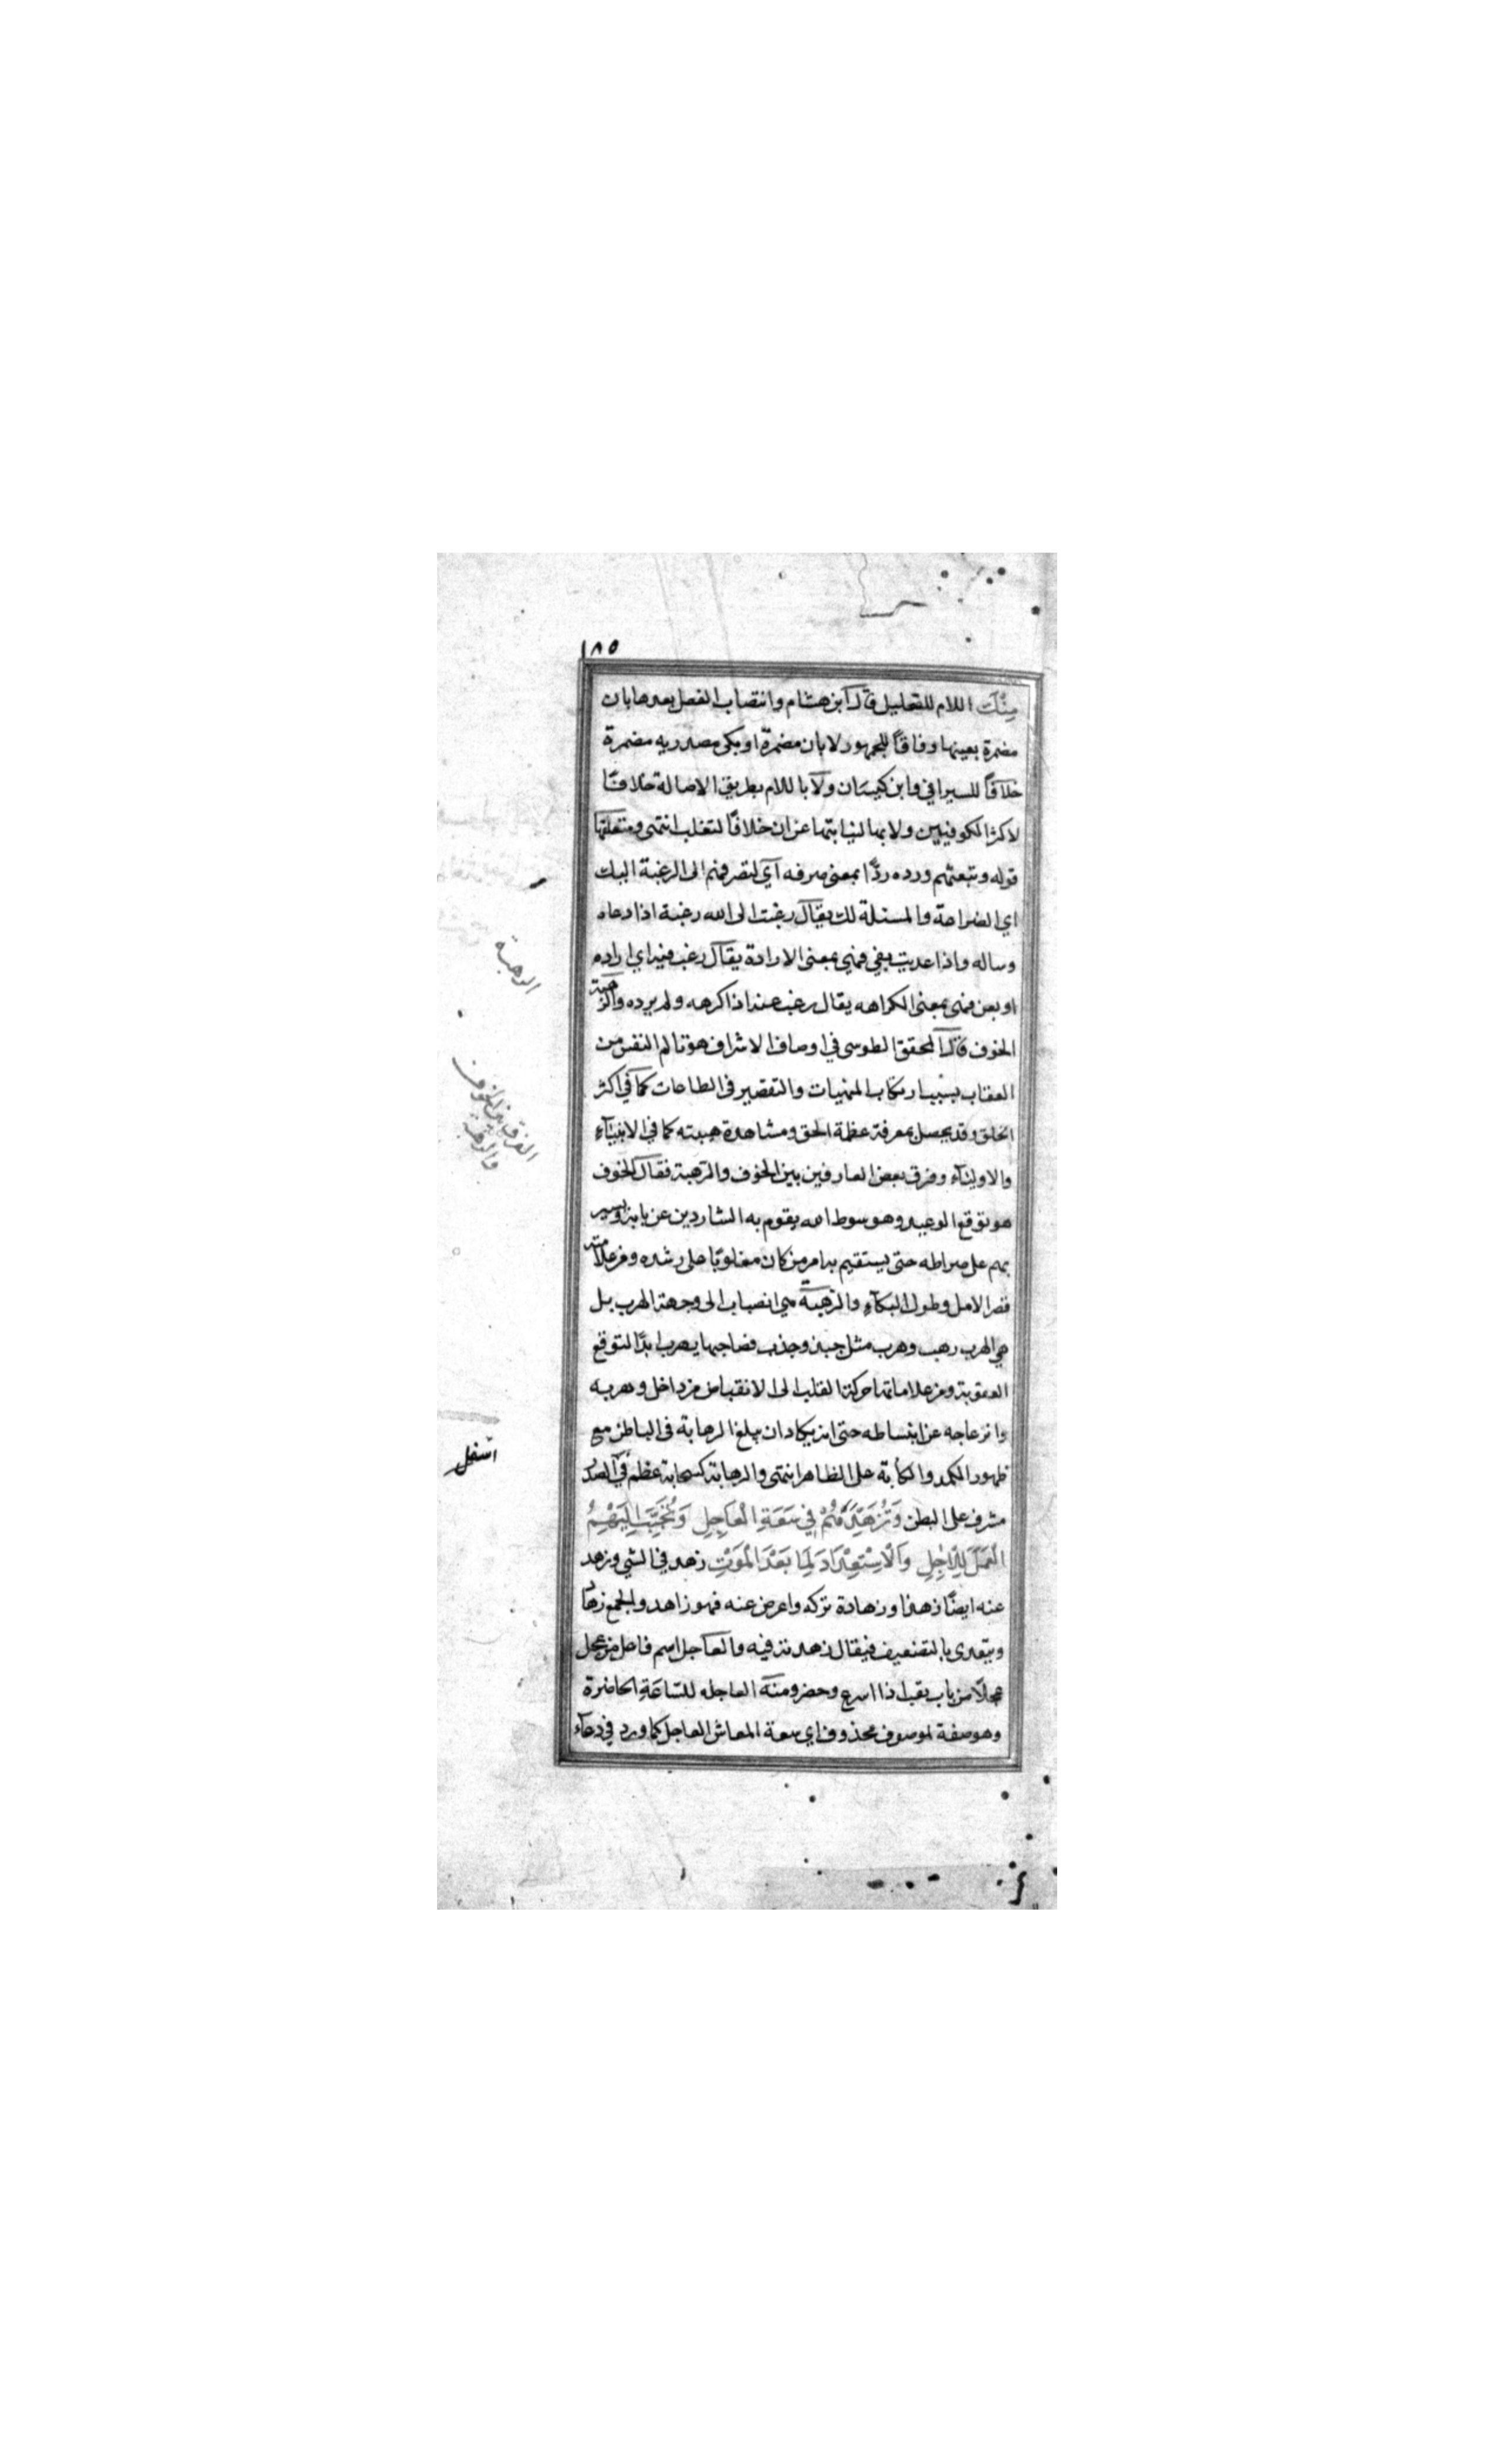 ١٨٥
مِنْكَ اللام للتعليل قال ابن هشام وانتصاب الفعل بعدها بان
مضمرة بعينها وفاقاً للجمهور لا بان مضمرة او بكى مصدريه مضمرة
خلافاً للسيرافي وابن كيسان ولا باللام بطريق الاصالة خلافاً
لاكثر الكوفيين ولا بها لنيابتها عن ان خلافاً لثعلب انتهى ومتعلقها
قوله وتبعثهم ورده ردّاً بمعنى صرفه اي لتصرفهم الى الرغبة اليك
اي الضراعة والمسئلة لك يقال رغبت الى الله رغبة اذا دعاه
وساله واذا عديت بفي فهي بمعنى الارادة يقال رغب فيه اي اراده
او بعن فهى بمعنى الكراهه يقال رغب عنه اذا كرهه ولم يرده والرهبة
الخوف قال المحقق الطوسى في اوصاف الاشراف هو تالم النفس من
العقاب بسبب ارتكاب المنهيات والتقصير في الطاعات كما في اكثر
الخلق وقد يحصل بمعرفة عظمة الحق ومشاهدة هيبته كما في الانبيآء
والاوليآء وفرق بعض العارفين بين الخوف والرهبة فقال الخوف
هو توقع الوعيد وهو سوط الله يقوم به الشاردين عن بابه ويسير
بهم على صراطه حتى يستقيم به امر من كان مغلوبًا على رشده ومن علامته
قصر الامل وطول البكآء والرهبة هي انصباب الى وجهة الهرب بل
هي الهرب رهب وهرب مثل جبذ وجذب فصاحبها يهرب ابدًا لتوقع
العقوبة ومن علاماتها حركة القلب الى الانقباض من داخل وهربه
وانزعاجه عن انبساطه حتى انه يكاد ان يبلغ الرهابة في الباطن مع
ظهور الكمد والكآبة على الظاهر انتهى والرهابة كسحابة عظم في الصدر
مشرف على البطن وَتُزَهِّدَهُمْ فِي سَعَةِ الْعَاجِلِ وَتُحَبِّبَ اِلَيْهِمُ
الْعَمَلَ لِلْآجِلِ وَالْاِسْتِعْدَادَ لِمَا بَعْدَ الْمَوْتِ زهد في الشي وزهد
عنه ايضًا زهدا وزهادة تركه واعرض عنه فهو زاهد والجمع زهاد
ويتعدى بالتضعيف فيقال زهدته فيه والعاجل اسم فاعل من عجل
عجلاً من باب تعب اذا اسرع وحضر ومنه العاجله للسّاعة الحاضرة
وهو صفة لموصوف محذوف اي سعة المعاش العاجل كما ورد في دعآء
الرهبة
الفرق بين الخوف
والرهبة
اسفل